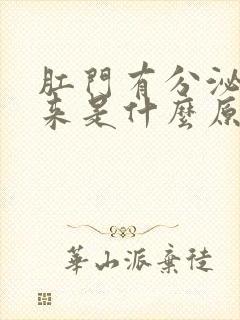 肛門有分泌
來是什麼原
華山派棄徒